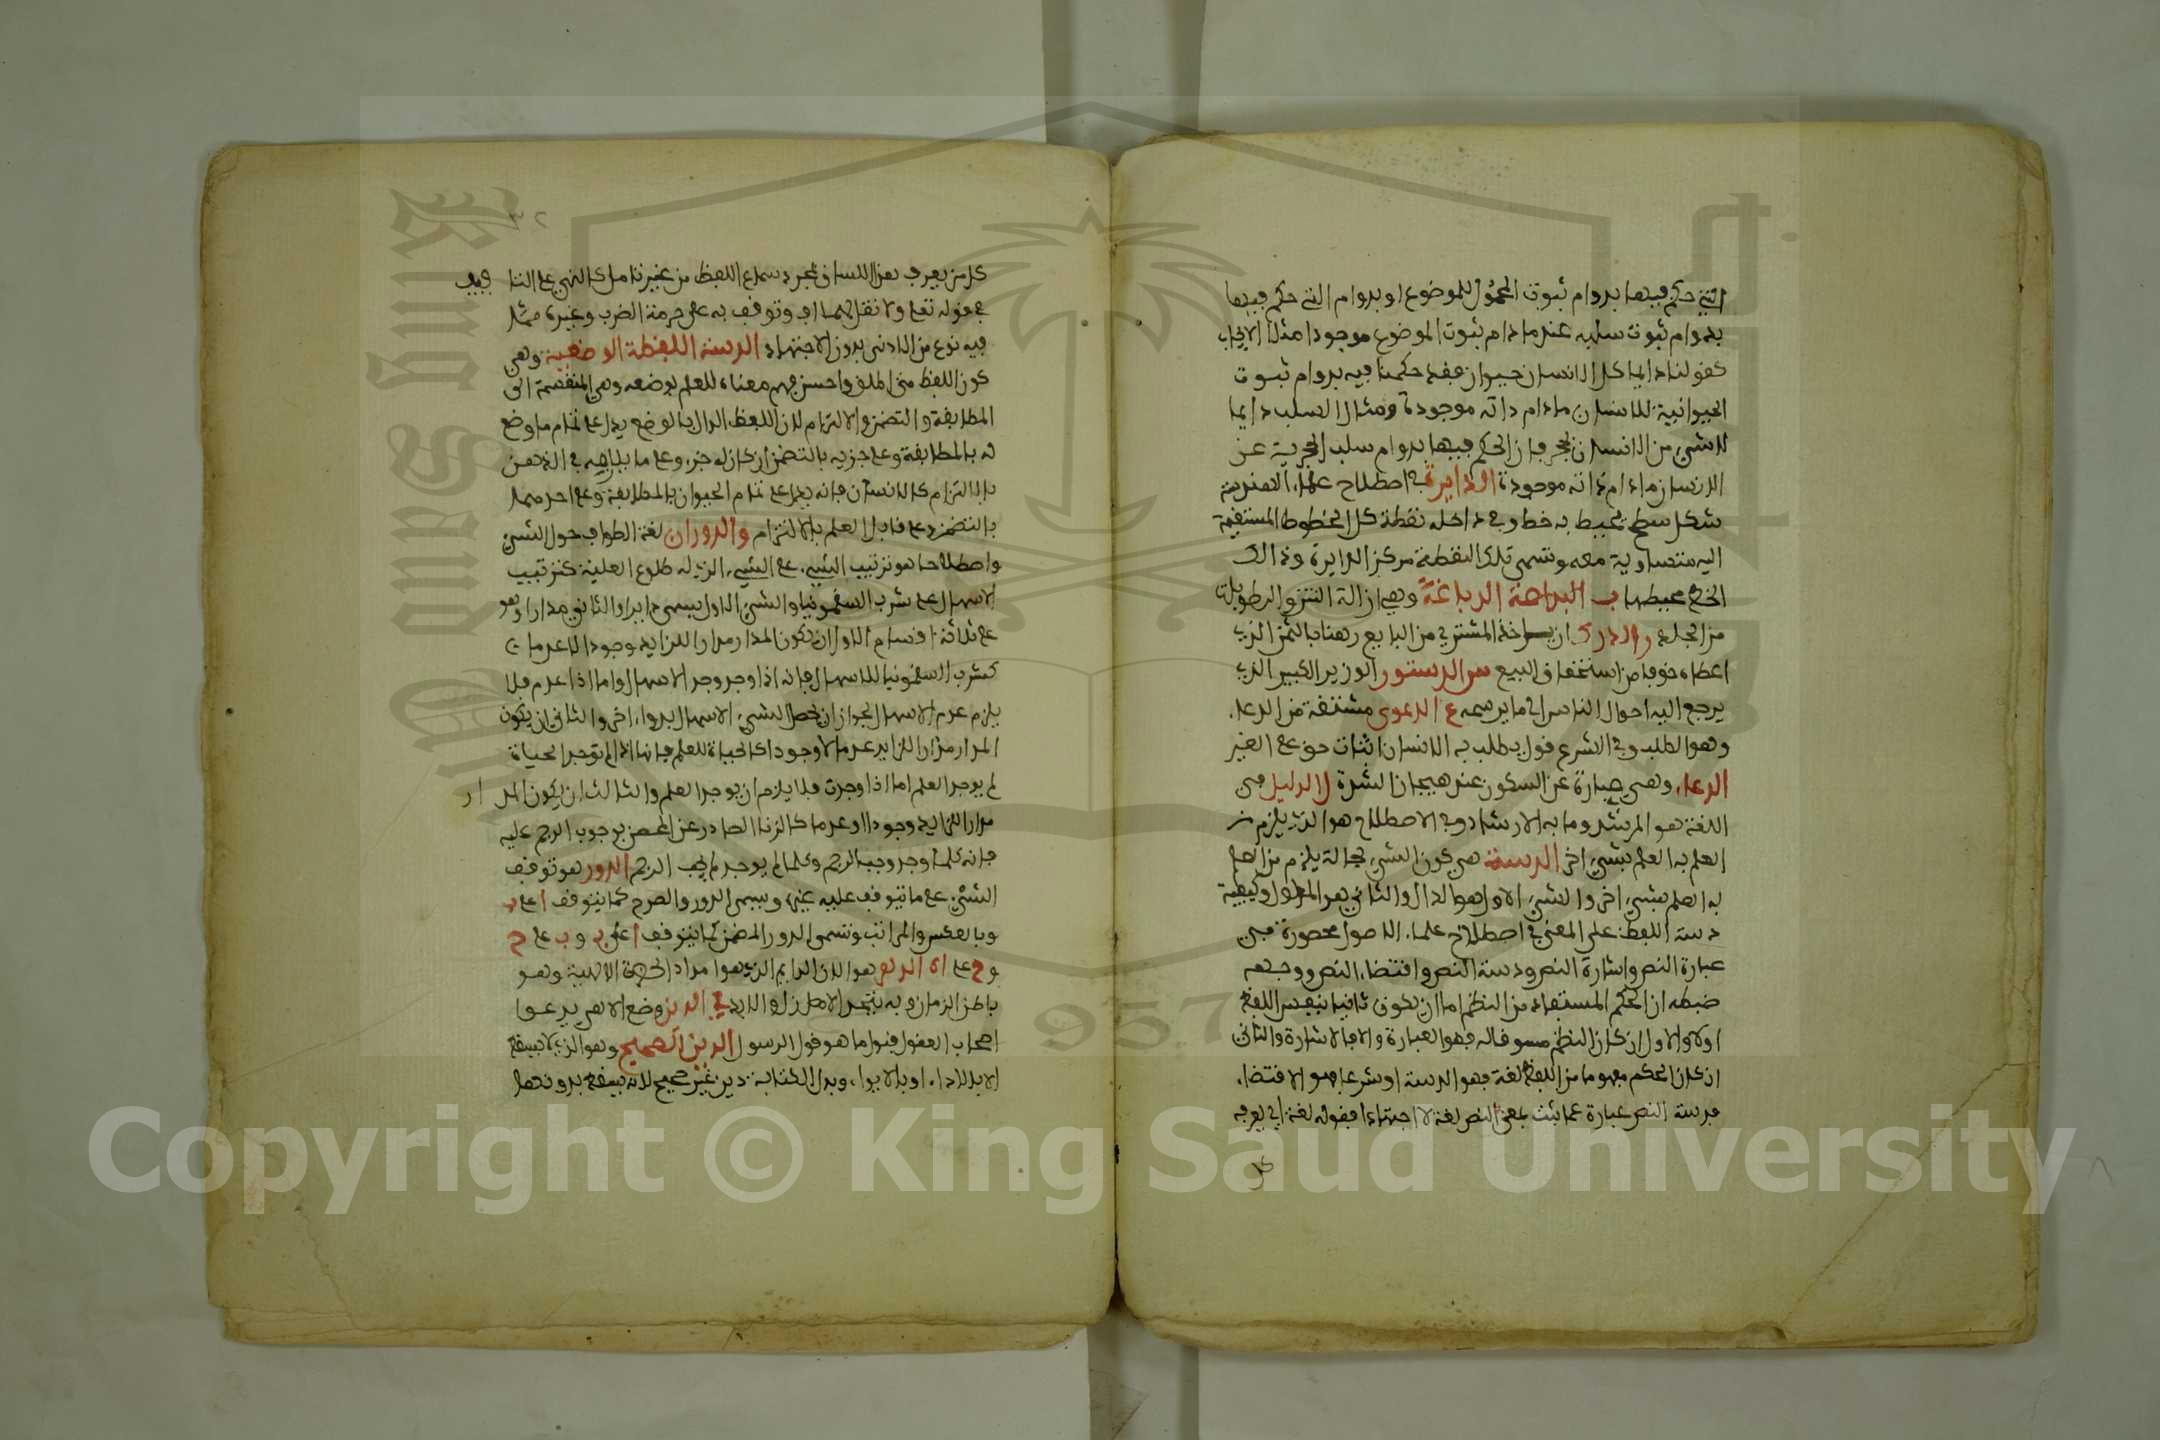 التي حكم فيها بدوام ثبوت المحمول للموضوع او بدوام التي حكم فيها
بدوام ثبوت سلبه عنه ما دام ثبوت الموضوع موجودا مثال الايجاب
كقولنا دايما كل انسان حيوان فقد حكمنا فيه بدوام ثبوت
الحيوانية للانسان ما دام ذاته موجودة ومثال السلب دايما
لا شيء من الانسان بحجر فان الحكم فيها بدوام سلب الحجرية عن
الانسان ما دام ذاته موجودة الدايرة في اصطلاح علماء الهندسة
شكل سطح يحيط به خط وفي داخله نقطة كل الخطوط المستقيمة
اليه متساوية معه وتسمى تلك النقطة مركز الدايرة وذلك
الخط محيطها ب الدباغة وهي ازالة النتن والرطوبات
من الجلد ر الدرك ان ياخذ المشتري من البايع رهنا بالثمن الذي
اعطاه خوفا من استحقاق البيع س الدستور الوزير الكبير الذي
يرجع اليه احوال الناس الى ما يرسمه ع الدعوى مشتقة من الدعاء
وهو الطلب وفي الشرع قول يطلب به الانسان اثبات حق على الغير
الدعاء وهي عبارة عن السكون عند هيجان الشهرة ل الدليل في
اللغة هو المرشد وما به الارشاد وفي الاصطلاح هو الذي يلزم من
العلم به العلم بشيء اخر الدلالة هي كون الشيء بحالة يلزم من العلم
به العلم بشيء اخر والشيء الاول هو الدال والثاني هو المدلول وكيفية
دلالة اللفظ على المعنى في اصطلاح علماء الاصول محصورة في
عبارة النص واشارة النص ودلالة النص واقتضاء النص ووجه
ضبطه ان الحكم المستفاد من النظم اما ان يكون ثابتا بنفس اللفظ
او لا والاول ان كان النظم مسوقا له فهو العبارة والا فالاشارة والثاني
ان كان الحكم مفهوما من اللفظ لغة فهو الدلالة او شرعا فهو الاقتضاء
فدلالة النص عبارة عما ثبت بمعنى النص لغة لا اجتهادا فقوله لغة اي يعرفه
كل
٣٢
كل من يعرف هذا اللسان بمجرد سماع اللفظ من غير تامل كالنهي عن التا فيف
في قوله تعالى ولا تقل لهما اف وتوقف به على حرمة الضرب وغيره مما
فيه نوع من الاذى بدون الاجتهاد الدلالة اللفظية الوضعية وهي
كون اللفظ متى اطلق واحسن فهم معناه للعلم بوضعه وهي المنقسمة الى
المطابقة والتضمن والالتزام لان اللفظ الدال بالوضع يدل على تمام ما وضع
له بالمطابقة وعلى جزيه بالتضمن ان كان له جزء وعلى ما يلازمه في الذهن
بالالتزام كالانسان فانه يدل على تمام الحيوان بالمطابقة وعلى احدهما
بالتضمن وعلى قابل العلم بالالتزام والدوران لغة الطواف حول الشيء
واصطلاحا هو ترتيب الشيء على الشيء الذي له طلوع العلية كترتيب
الاسهال على شرب السقمونيا والشيء الاول يسمى دايرا والثاني مدارا وهو
على ثلاثة اقسام الاول ان يكون المدار مدارا للدايد وجودا لا عدما
كشرب السقمونيا للاسهال فانه اذا وجد وجد الاسهال واما اذا عدم فلا
يلزم عدم الاسهال لجواز ان يحصل الشيء الاسهال بدواء اخر والثاني ان يكون
المدار مدارا للداير عدما لا وجودا كالحياة للعلم فانها اذا لم توجد الحياة
لم يوجد العلم اما اذا وجدت فلا يلزم ان يوجد العلم والثالث ان يكون المد ار
مدارا للدايد وجودا وعدما كالزنا الصادر عن المحصن بوجوب الرجم عليه
فانه كلما وجد وجب الرجم وكلما لم يوجد لم يجب الرجم الدور هو توقف
الشيء على ما يتوقف عليه غيره ويسمى الدور والصرح كما يتوقف ا على ب
وبالعكس والمراتب وتسمى الدور المضمر كما يتوقف ا على ب و ب على ح
و ح على ا ه الدهر هو الان الدايم الذي هو امداد الحضرة الالهية وهو
باطن الزمان وبه يتحد الازل والابد ي الدين وضع الاهي يدعوا
اصحاب العقول قبول ما هو قول الرسول الدين الصحيح وهو الذي لا يسقط
الا بالاداء او بالابراء وبدل الكتابة دين غير صحيح لانه يسقط بدونهما
Copyright © King Saud University
King Saud University
1957